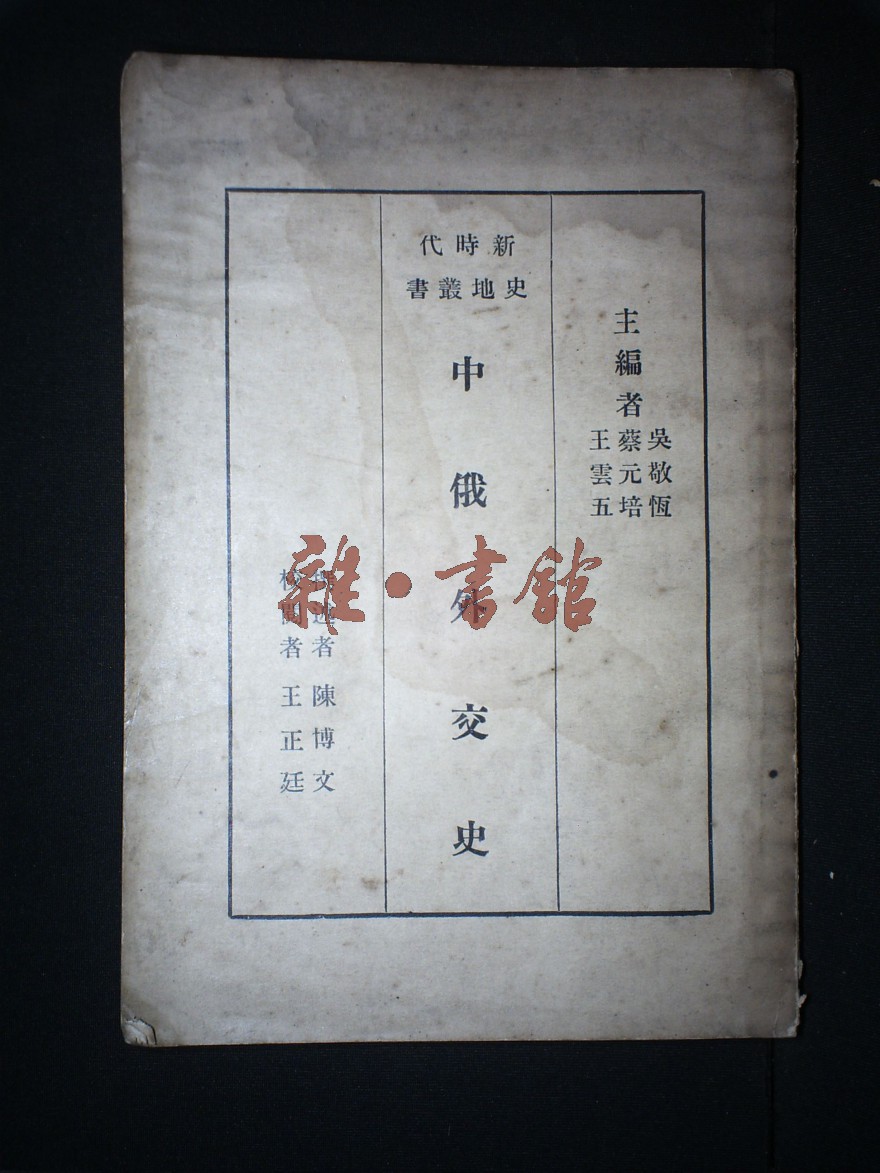 主編者
吳敬恆
蔡元培
王雲五
新時代
史地叢書
中俄外交史
撰述者 陳博文
校閱者 王正廷
雜·書館